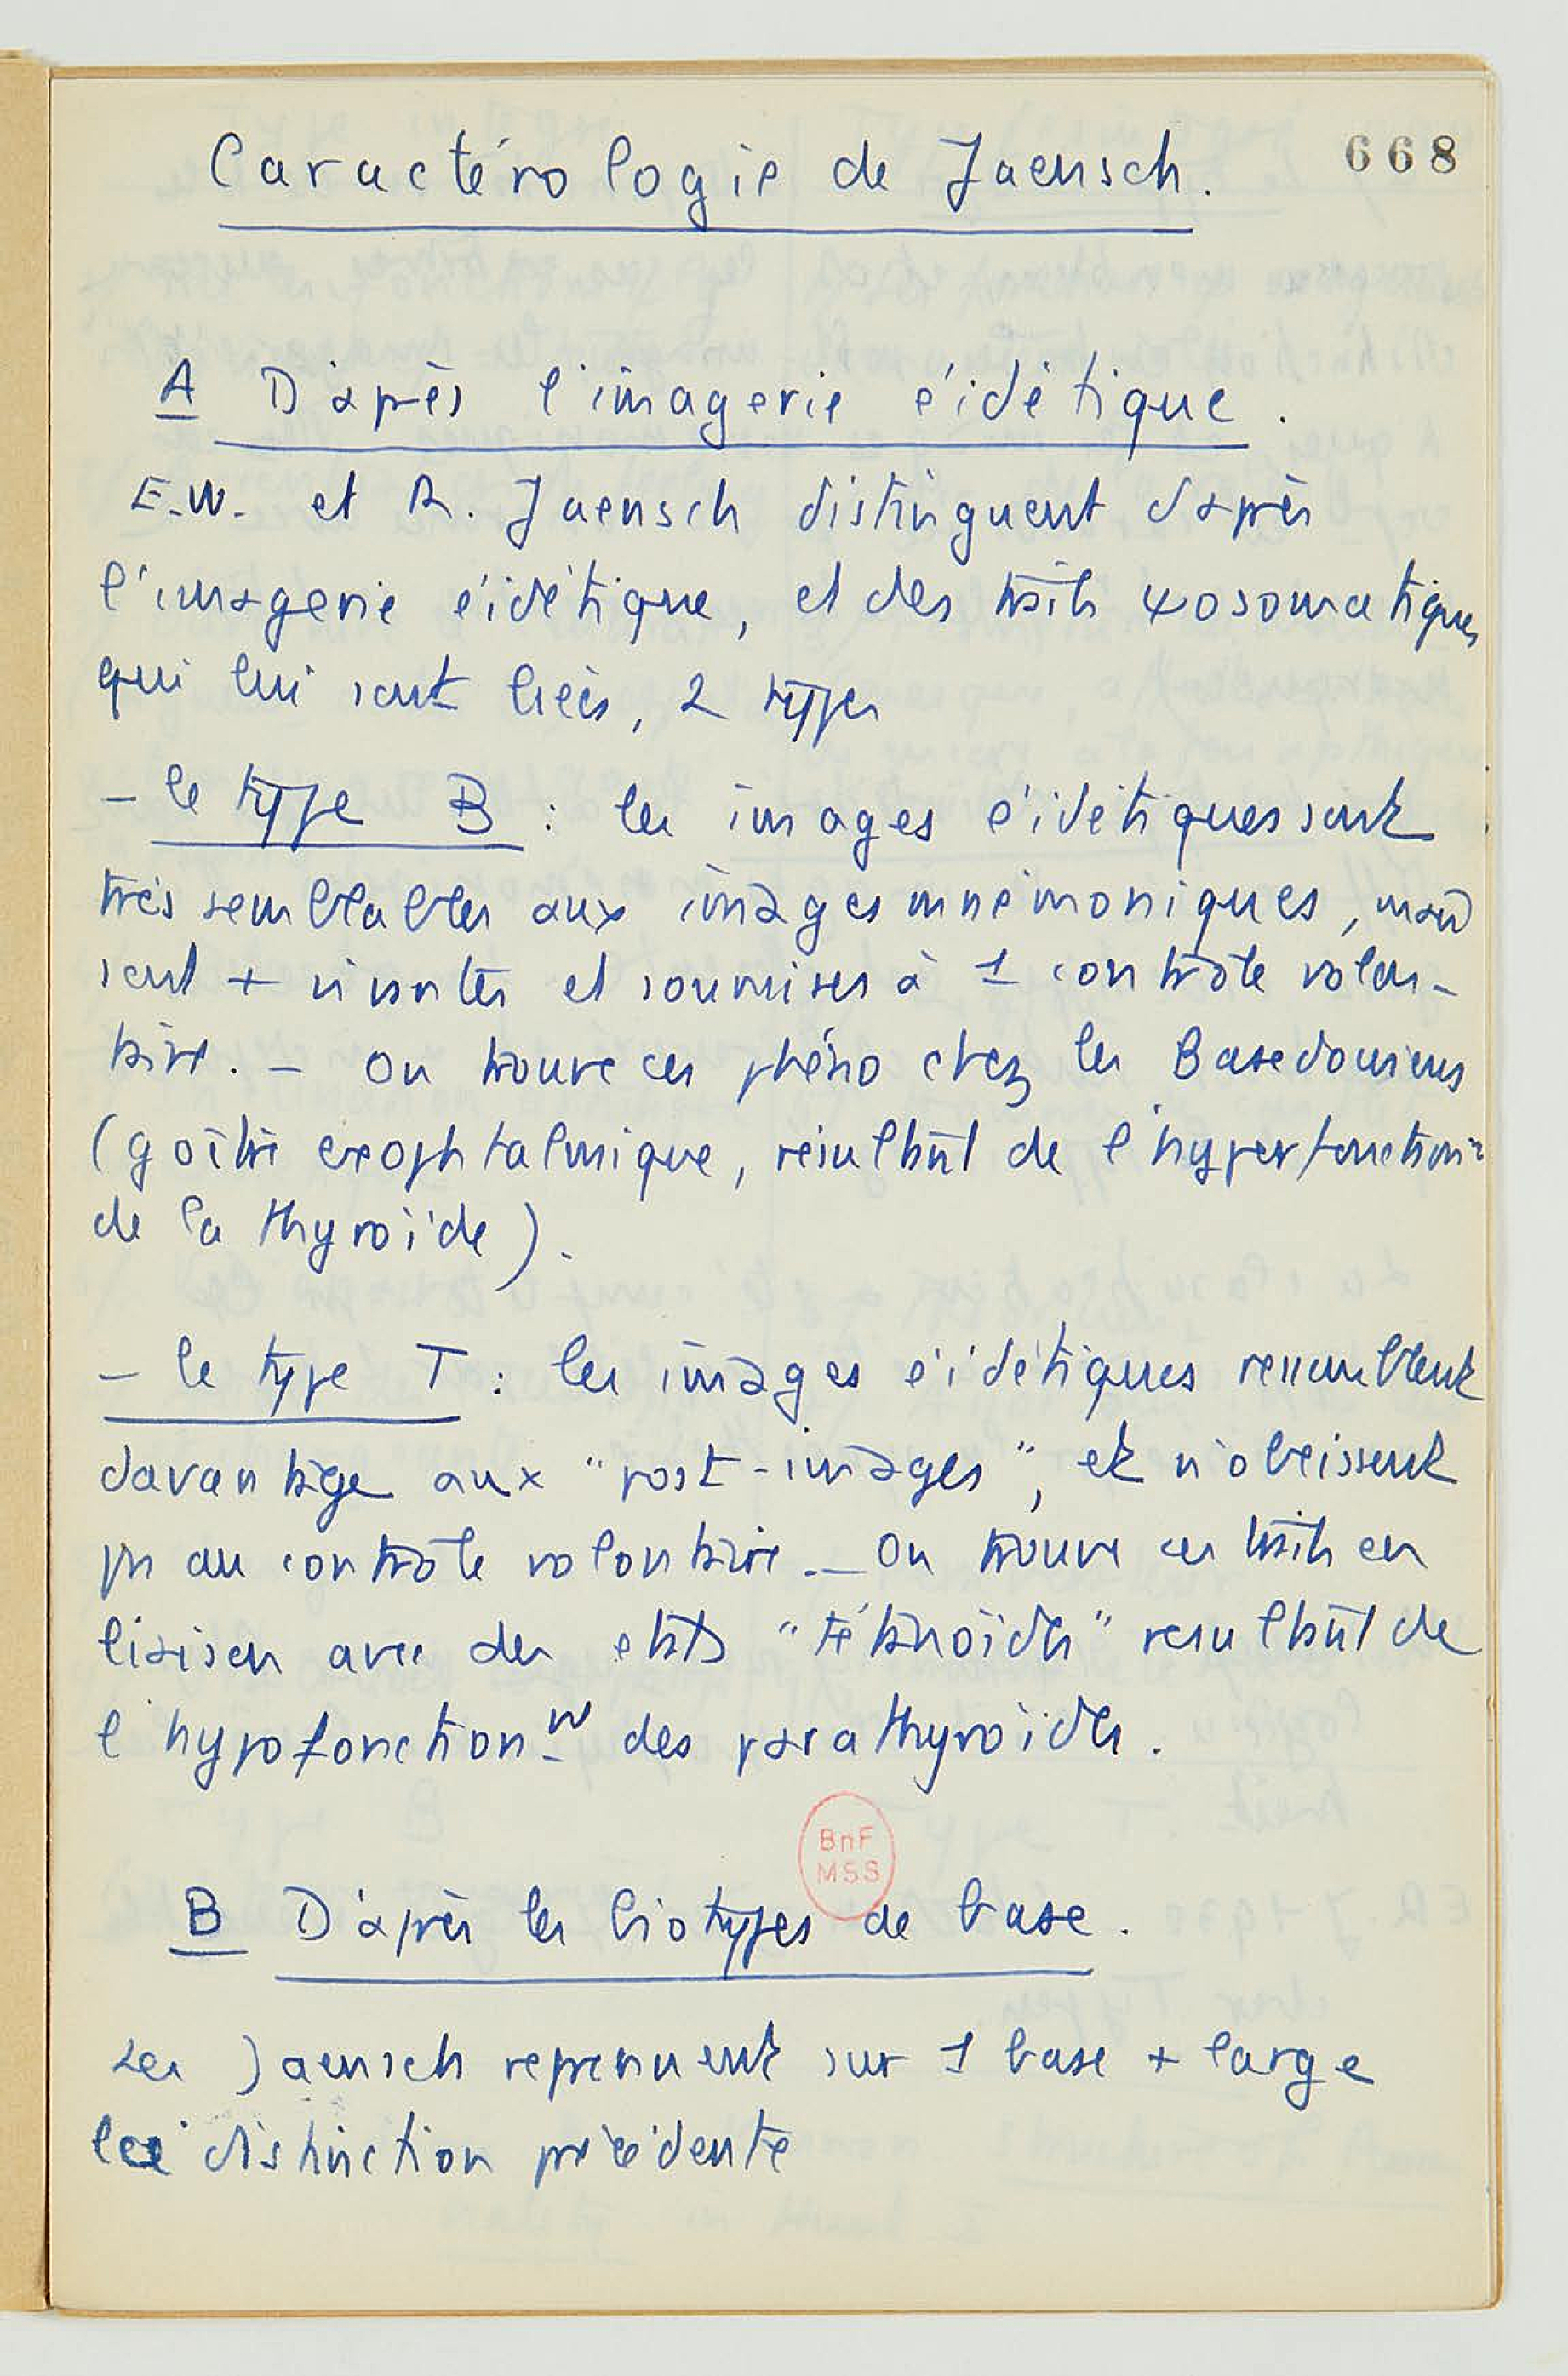 668
Caractérologie de Jaensch.
A D'après l'imagerie éidétique.
E.W. et R. Jaensch distinguent d'après
l'imagerie éidétique, et des traits ψosomatiques
qui lui sont liés, 2 types
- le type B : les images éidétiques sont
très semblables aux images mnémoniques, mais
sont + vivantes et soumises à 1 contrôle volon-
taire. - On trouve ces phéno chez les Basedowiens
(goître exophtalmique, résultant de l'hyperfonctionnt
de la thyroïde).
- le type T : les images éidétiques ressemblent
davantage aux "post-images", et n'obéissent
pas au contrôle volontaire. - On trouve ces traits en
liaison avec des états "tétanoïdes" résultant de
l'hypofonctionnt des parathyroïdes.
BnF
MSS
B D'après les biotypes de base.
Les Jaensch reprennent sur 1 base + large
la distinction précédente